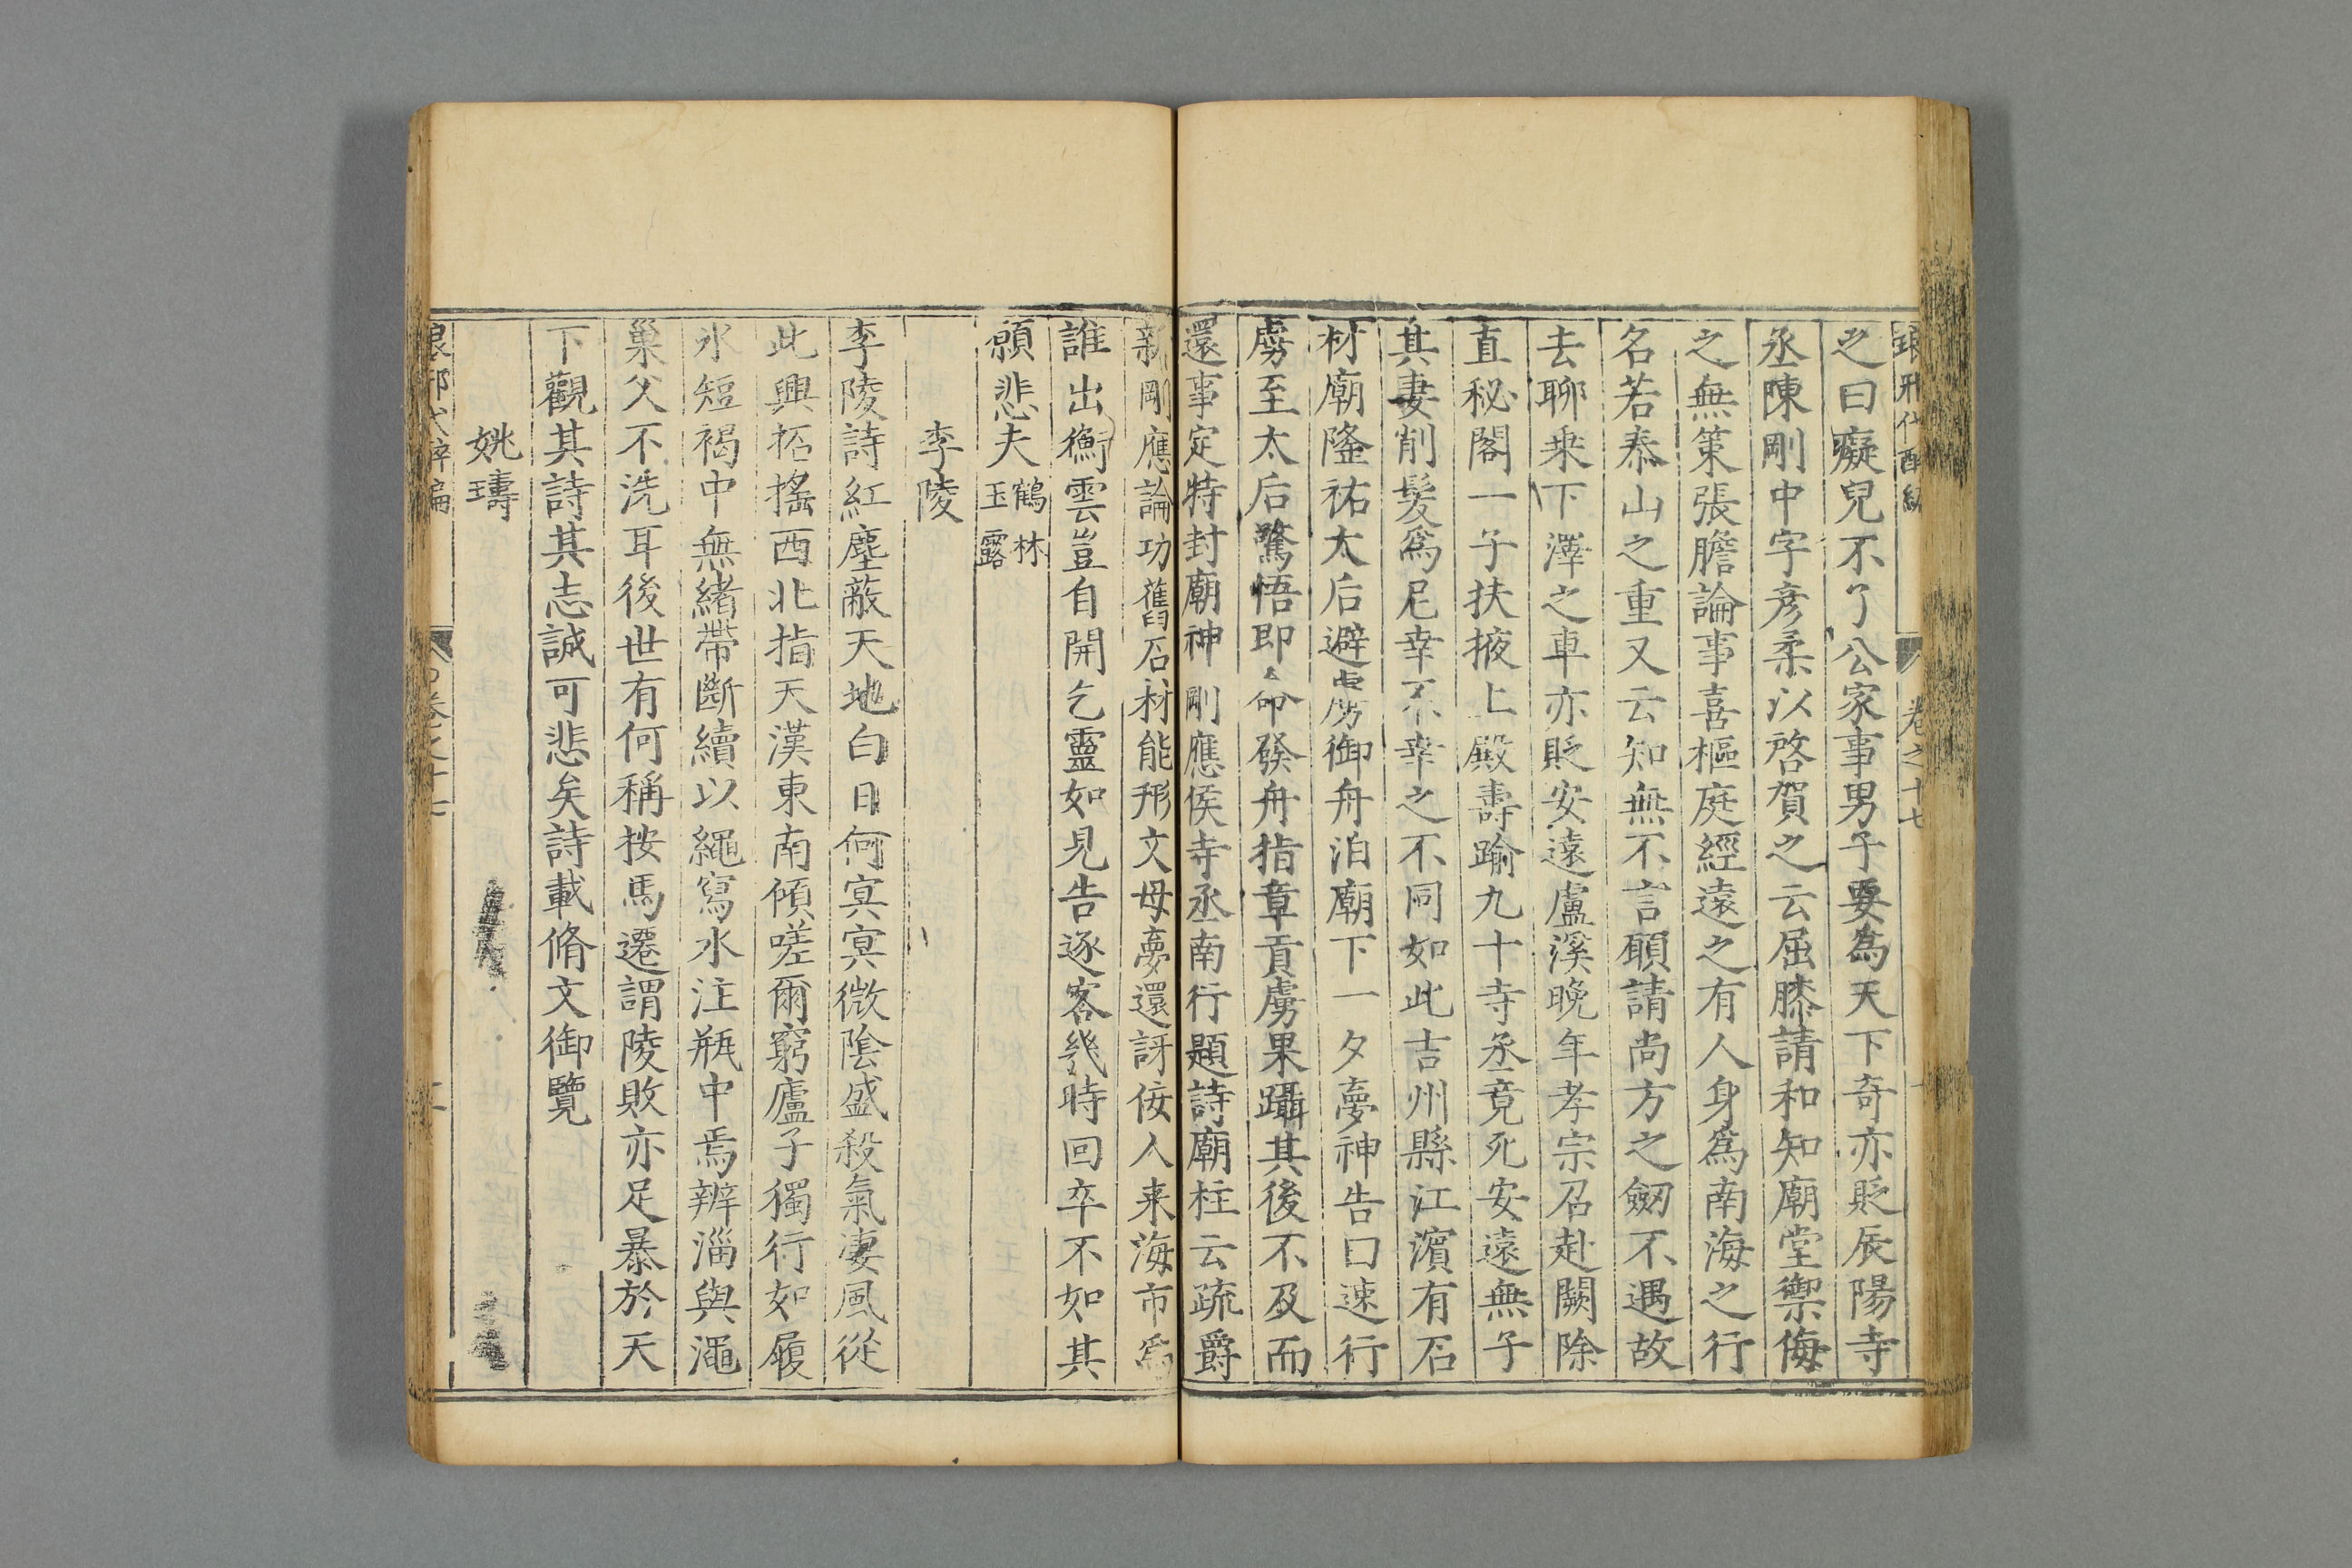 琅邪代醉編 卷之十七
之曰癡兒不了公家事男子要為天下奇亦貶辰陽寺
丞陳剛中字彦柔以啓賀之云屈膝請和知廟堂禦侮
之無策張膽論事喜樞庭經遠之有人身爲南海之行
名若泰山之重又云知無不言願請尚方之劒不遇故
去聊乗下澤之車亦貶安遠盧溪晚年孝宗召赴闕除
直秘閣一子扶掖上殿壽踰九十寺丞竟死安遠無子
其妻削髮爲尼幸不幸之不同如此吉州縣江濵有石
材廟隆祐太后避虜御舟泊廟下一夕夢神告曰速行
虜至太后驚悟即命發舟指章貢虜果躡其後不及而
還事定特封廟神剛應侯寺丞南行題詩廟柱云疏爵
新剛應論功舊石材能形文母夢還訝侫人来海市爲
誰出衡雲豈自開乞靈如見告逐客幾時回卒不如其
願悲夫鶴林玉露
李陵
李陵詩紅塵蔽天地白日何冥冥微陰盛殺氣淒風從
此興招搖西北指天漢東南傾嗟爾窮廬子獨行如履
氷短褐中無緒帶斷續以繩寫水注瓶中焉辨淄與澠
巢父不洗耳後世有何稱按馬遷謂陵敗亦足暴於天
下觀其詩其志誠可悲矣詩載脩文御覽
姚璹
琅邪代醉編 卷之十七 二